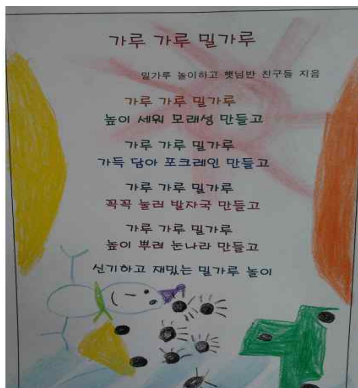 가루 가루 밀가루
밀가루 놀이하고 햇님반 친구들 지음
가루 가루 밀가루
높이 세워 모래성 만들고
가루 가루 밀가루
가득 담아 포크레인 만들고
가루 가루 밀가루
꼭꼭 눌러 발자국 만들고
가루 가루 밀가루
높이 뿌려 눈나라 만들고
신기하고 재밌는 밀가루 놀이